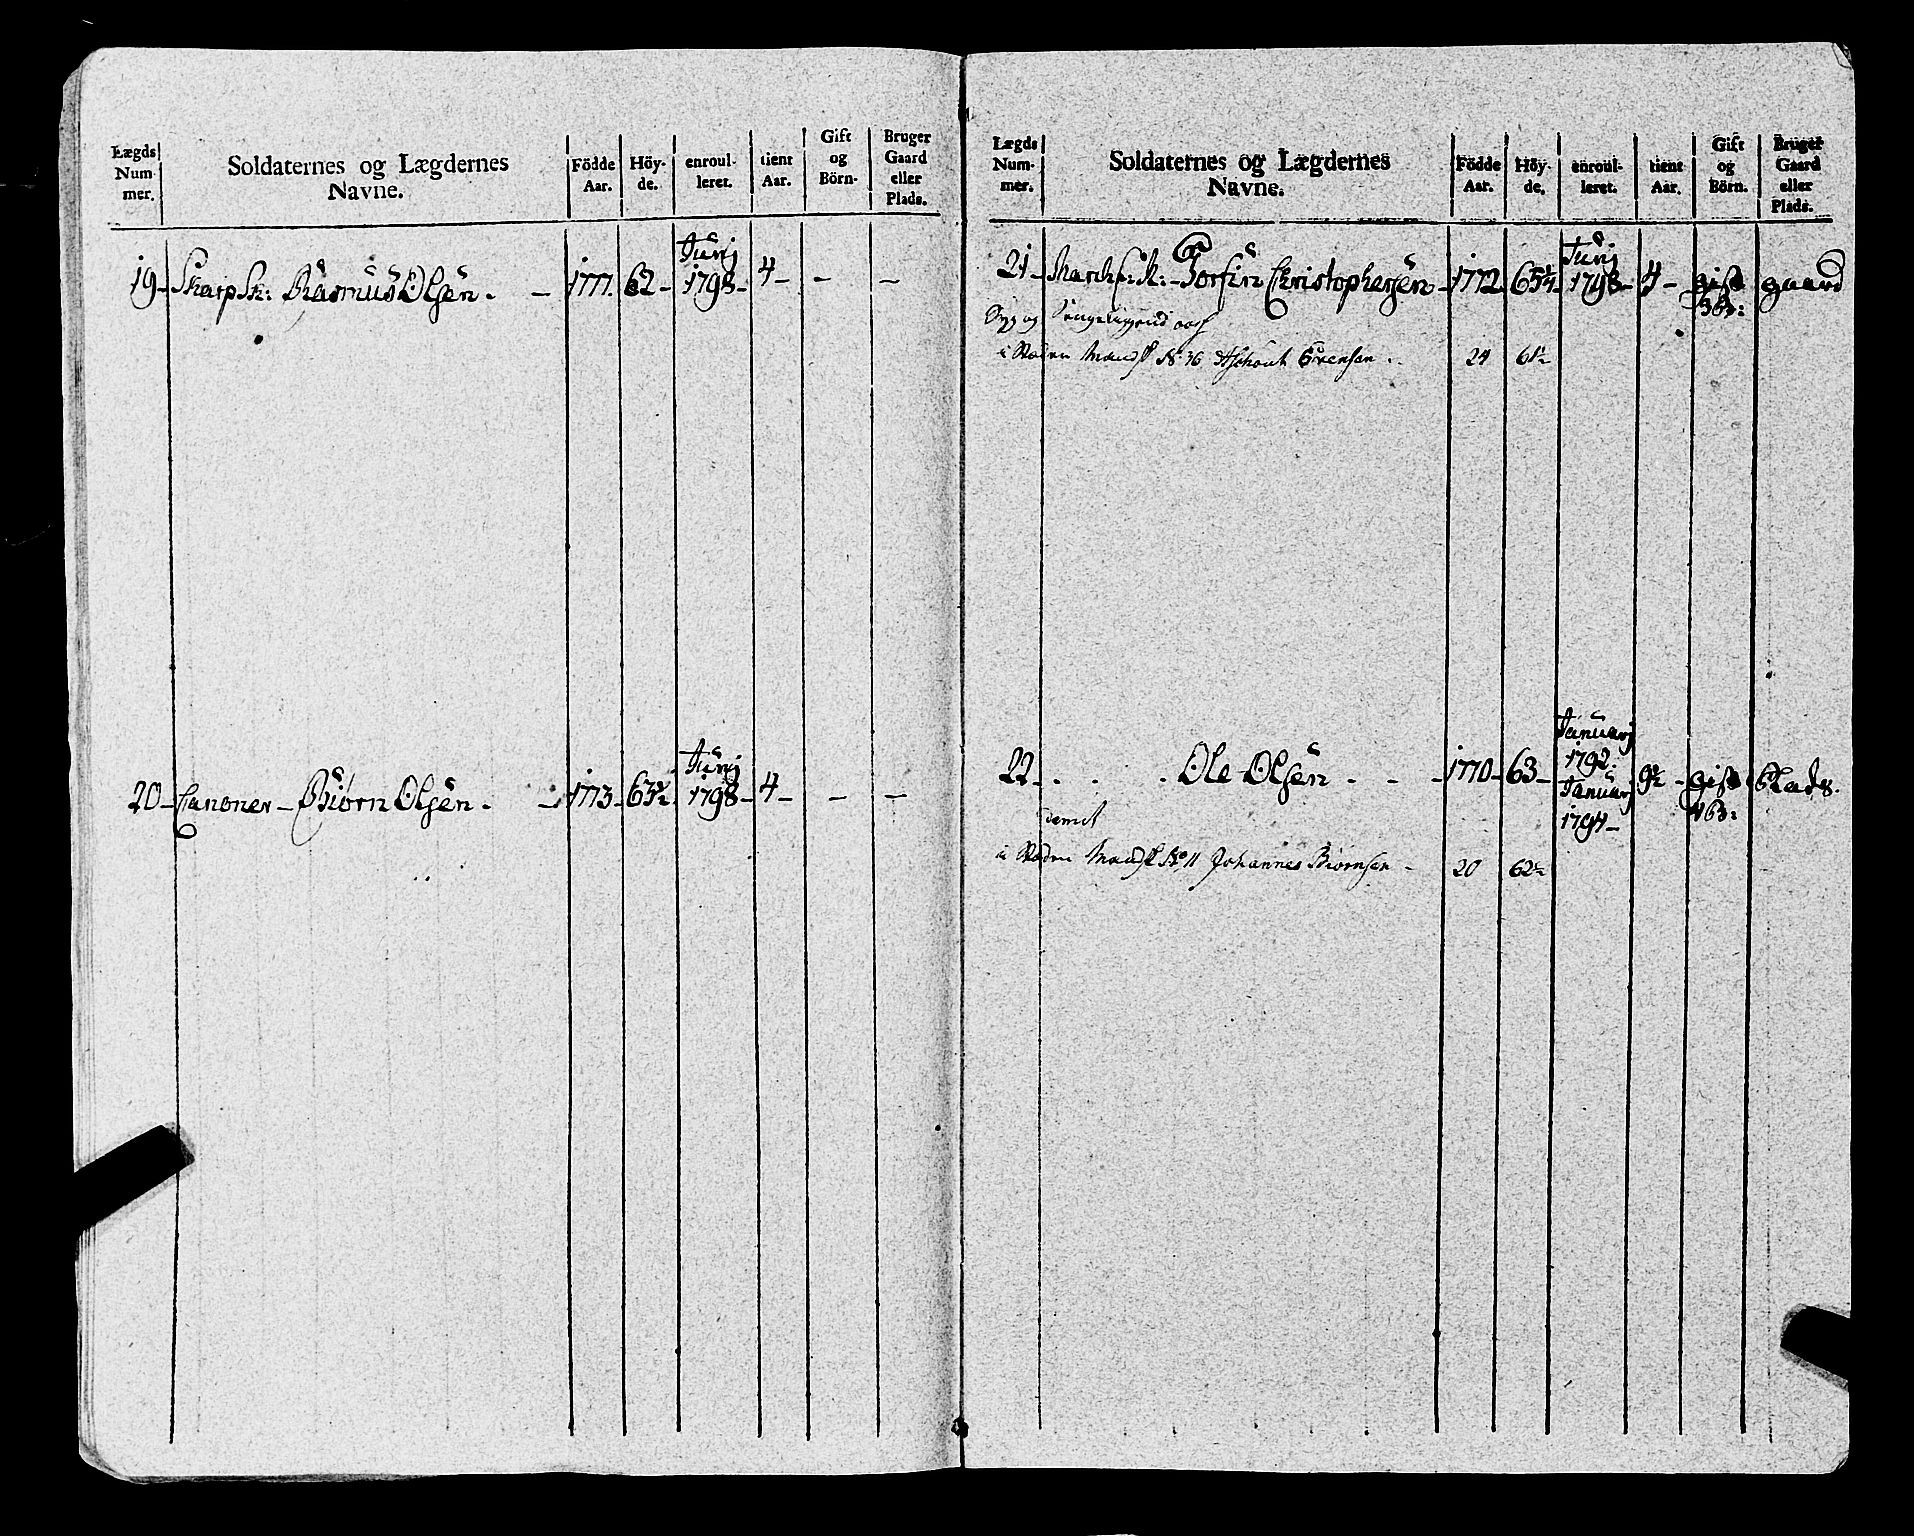 Lægds Nummer. Soldaternes og Lægdernes Navne. Födde Aar. Höyde. enroulleret. tient Aar. Gift og Börn. Bruger Gaard eller Plads.
19 - Skarp Sk: Rasmus Olsen. - 1777. 62 - Junij 1798 - 4 - - -
20 - Canoner - Biørn Olsen. - 1773 - 63½. Junij 1798 - 4 - - -
Lægds Nummer. Soldaternes og Lægdernes Navne. Födde Aar. Höyde. enroulleret. tient Aar. Gift og Börn. Bruger Gaard eller Plads.
21 - Torfin Christophersen - 1772 - 65¼ - Junij 1798 - 4 - gift 3b: gaard
Syg og Sengeliggend
i Støden Mandsk N: 36 24 61½
22 - Ole Olsen - 1770 - 63 - Januarj 1792. Januarj 1794 - 9½ - gift 4b: Plads.
i Støden Mandsk No 11 Johannes Biørnsen - 20 62½